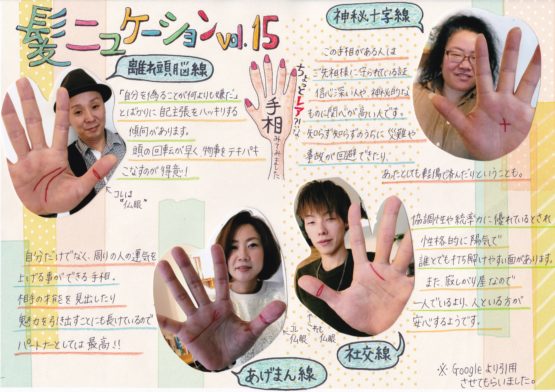 髪ニュケーション vol.15
離れ頭脳線
「自分を偽ることが何よりも嫌だ…」
とばかりに自己主張をハッキリする
傾向があります。
頭の回転が早く物事をテキパキ
こなすのが得意!
コレは
"仏眼"
ちょっとレアな
手相
みてみました
神秘十字線
この手相がある人は
ご先祖様に守られている証
信心深い人や神秘的な
ものに関心が高い人です。
知らず知らずのうちに災難や
事故が回避できたり、
あったとしても軽傷で済んだりということも。
自分だけでなく、周りの人の運気を
上げる事ができる手相。
相手の才能を見出したり
魅力を引き出すことにも長けているので
パートナーとしては最高!!
あげまん線
コレ
仏眼
これも
仏眼
社交線
協調性や統率力に優れているとされ
性格的に陽気で
誰とでも打ち解けやすい面があります。
また、寂しがり屋なので
一人でいるより、人といる方が
安心するようです。
※Googleより引用
させてもらいました。